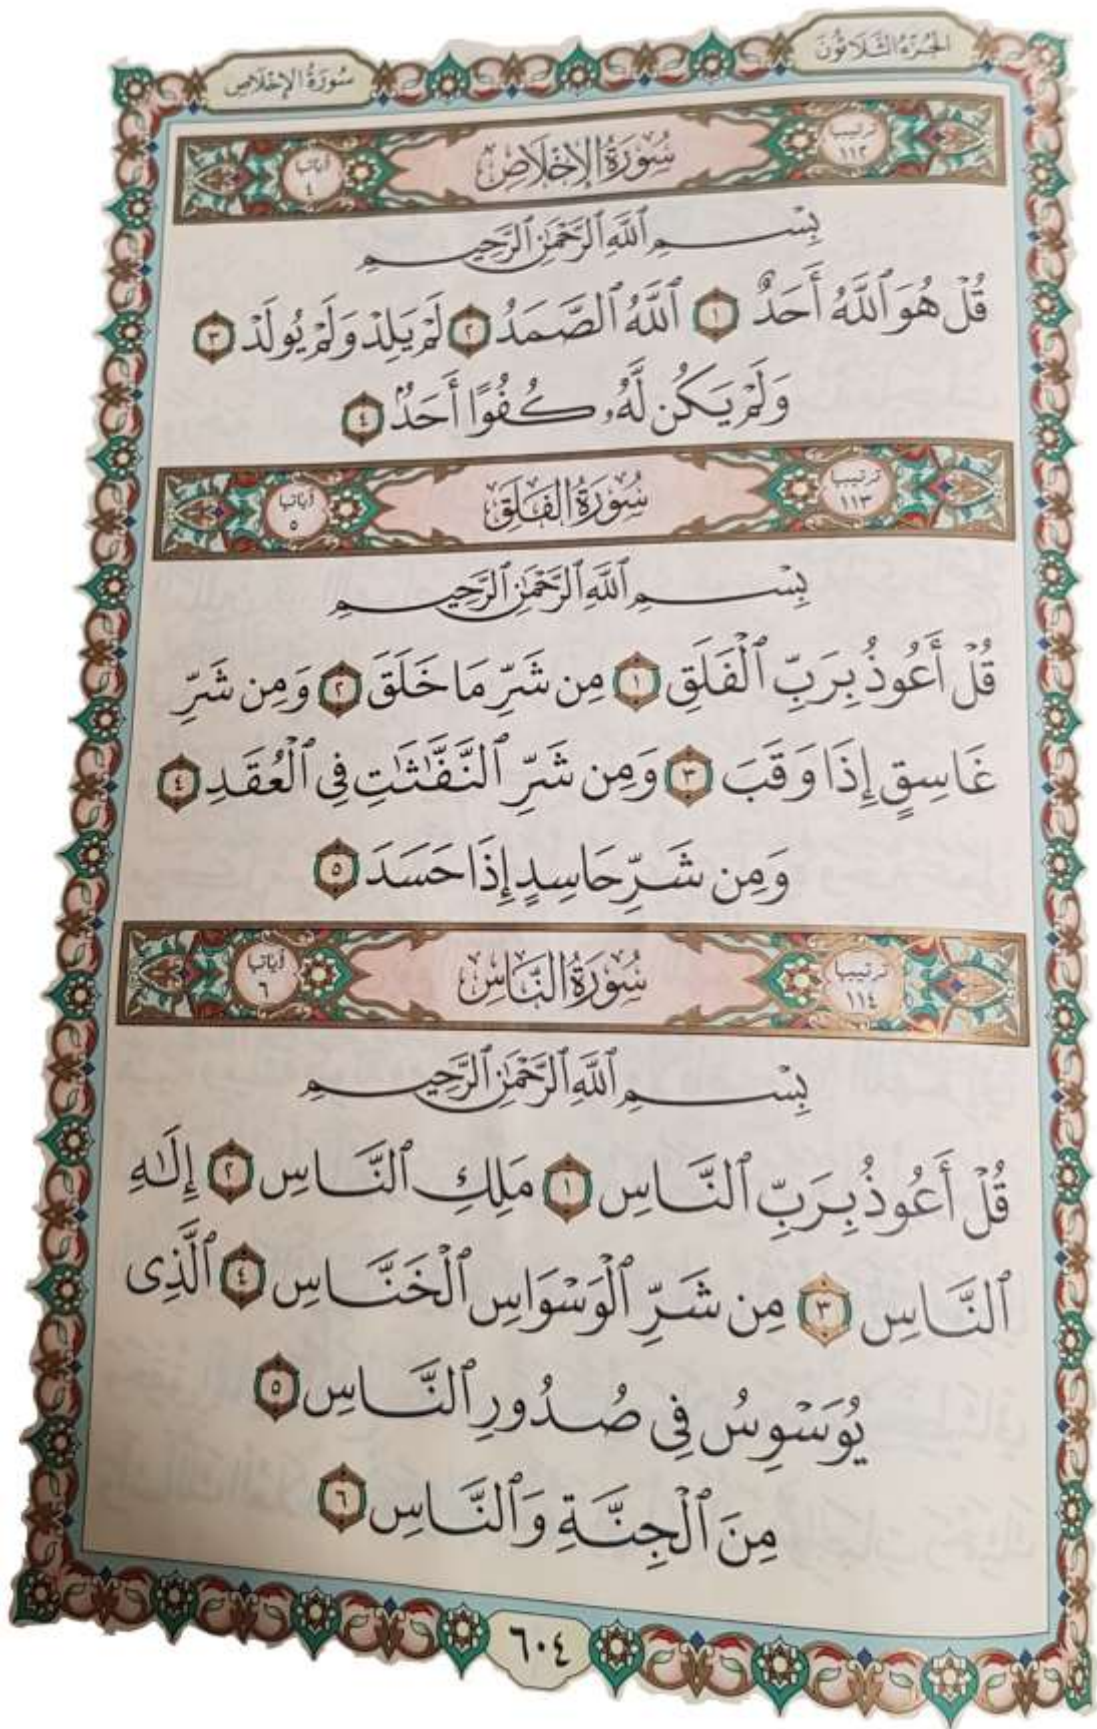 الجُزْءُ الثَّلَاثُونَ
سُورَةُ الإِخْلَاصِ
ترتيبها ١١٢
سُورَةُ الإِخْلَاصِ
آياتها ٤
بِسْمِ ٱللَّهِ ٱلرَّحْمَٰنِ ٱلرَّحِيمِ
قُلْ هُوَ ٱللَّهُ أَحَدٌ ١ ٱللَّهُ ٱلصَّمَدُ ٢ لَمْ يَلِدْ وَلَمْ يُولَدْ ٣
وَلَمْ يَكُن لَّهُۥ كُفُوًا أَحَدٌۢ ٤
ترتيبها ١١٣
سُورَةُ الفَلَقِ
آياتها ٥
بِسْمِ ٱللَّهِ ٱلرَّحْمَٰنِ ٱلرَّحِيمِ
قُلْ أَعُوذُ بِرَبِّ ٱلْفَلَقِ ١ مِن شَرِّ مَا خَلَقَ ٢ وَمِن شَرِّ
غَاسِقٍ إِذَا وَقَبَ ٣ وَمِن شَرِّ ٱلنَّفَّٰثَٰتِ فِى ٱلْعُقَدِ ٤
وَمِن شَرِّ حَاسِدٍ إِذَا حَسَدَ ٥
ترتيبها ١١٤
سُورَةُ النَّاسِ
آياتها ٦
بِسْمِ ٱللَّهِ ٱلرَّحْمَٰنِ ٱلرَّحِيمِ
قُلْ أَعُوذُ بِرَبِّ ٱلنَّاسِ ١ مَلِكِ ٱلنَّاسِ ٢ إِلَٰهِ
ٱلنَّاسِ ٣ مِن شَرِّ ٱلْوَسْوَاسِ ٱلْخَنَّاسِ ٤ ٱلَّذِى
يُوَسْوِسُ فِى صُدُورِ ٱلنَّاسِ ٥
مِنَ ٱلْجِنَّةِ وَٱلنَّاسِ ٦
٦٠٤